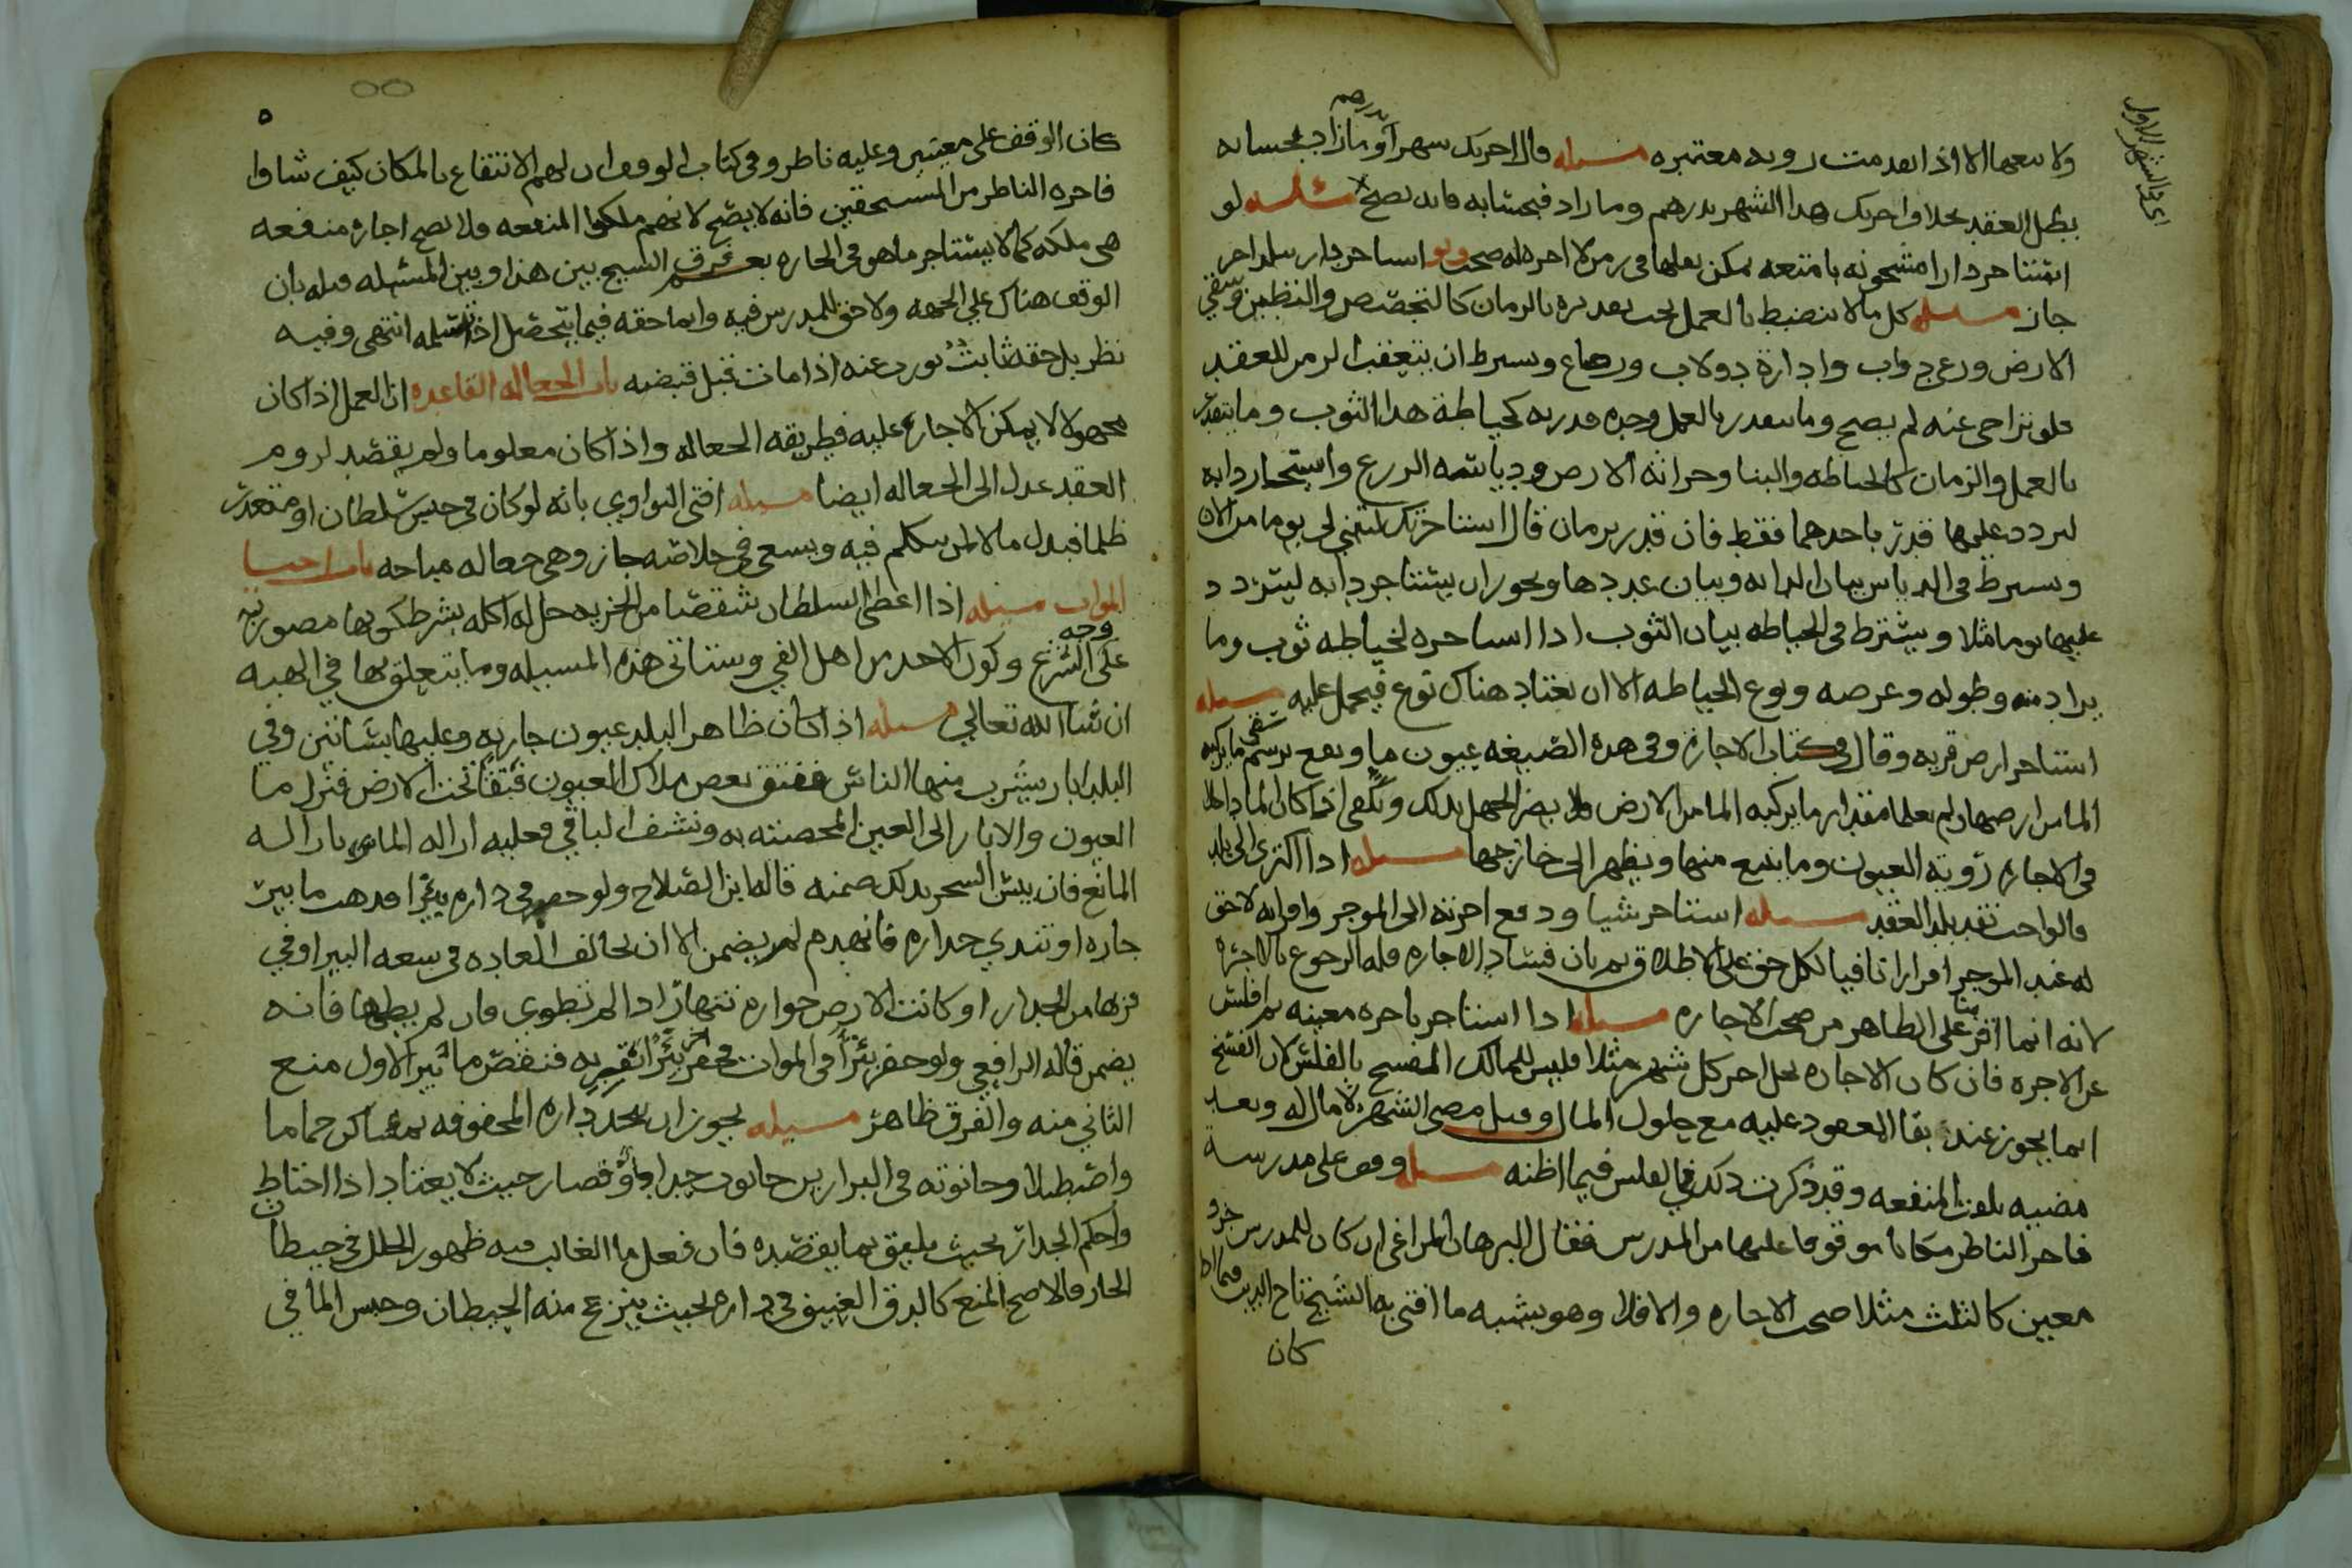 ولا بيعها الا اذا تقدمت رويه معتبره مسله قال اجرتك شهرا بدرهم وما زاد فبحسابه
بطل العقد بخلاف اجرتك هذا الشهر بدرهم وما زاد فبحسابه فانه يصح مسله لو
اي في الشهر الاول
استاجر دارا مشحونه بامتعه يمكن نقلها في زمن لا اجره له صحت ولو استاجر دار ببلد اخر
جاز مسله كل ما لا ينضبط بالعمل يجب تقديره بالزمان كالتجصيص والتطيين وسقي
الارض ورعي دواب وادارة دولاب ورضاع ويشترط ان يتعقب الزمن للعقد
فلو تراخى عنه لم يصح وما يتقدر بالعمل وحده قدر به كخياطة هذا الثوب وما يتقدر
بالعمل والزمان كالخياطه والبنا وحراثه الارض ودياسه الزرع واستيجار دابه
ليردد عليها قدر باحدهما فقط فان قدر بزمان قال استاجرتك لتبني لي يوما من الان
ويشترط في الدياس بيان الدابه وبيان عددها ويجوز ان يستاجر دابه ليتردد
عليها يوما مثلا ويشترط في الخياطه بيان الثوب اذا استاجره لخياطه ثوب وما
يراد منه وطوله وعرضه ونوع الخياطه الا ان يعتاد هناك نوع فيحمل عليه مسله
استاجر ارض قريه وقال في كتاب الاجاره وفي هذه الضيعه عيون ما ونقع برسم سقي ما يركبه
الما من ارضها ولم يعلما مقدار ما يركبه الما من الارض ولا يضر الجهل بذلك ويكفي اذا كان الما داخلا
في الاجاره رؤية العيون وما ينبع منها ويظهر الى خارجها مسله اذا اكترى الى بلد
فالواجب نقد بلد العقد مسله استاجر شيا ودفع اجرته الى الموجر واقر انه لا حق
له عند الموجر اقرارا نافيا لكل حق على الاطلاق ثم بان فساد الاجاره فله الرجوع بالاجره
لانه انما اقر بنا على الظاهر من صحت الاجاره مسله اذا استاجر باجره معينه ثم افلس
عن الاجره فان كان الاجاره بحل اجر كل شهر مثلا فليس للمالك الفسخ بالفلس لان الفسخ
انما يجوز عند بقا المعقود عليه مع حلول المال وقبل مضي الشهر لا مال له وبعد
مضيه تلفت المنفعه وقد ذكرت ذلك في الفلس فيما اظنه مسله وقف على مدرسة
فاجر الناظر مكانا موقوفا عليها من المدرس فقال البرهان المراغي ان كان للمدرس جزو
معين كالثلث مثلا صحت الاجاره والا فلا وهو يشبه ما افتى به الشيخ تاج الدين فيما اذا
كان
كان الوقف على معينين وعليه ناظر وفي كتاب الوقف ان لهم الانتفاع بالمكان كيف شاوا
فاجره الناظر من المستحقين فانه لا يصح لانهم ملكوا المنفعه ولا تصح اجاره منفعه
هي ملكه كما لا يستاجر ما هو في اجاره نعم فرق الشيخ بين هذا وبين المسئله قبله بان
الوقف هناك على الجهه ولا حق للمدرس فيه وانما حقه فيما يتحصل اذا تسلمه انتهى وفيه
نظر بل حقه ثابت يورث عنه اذا مات قبل قبضه باب الجعاله القاعده ان العمل اذا كان
مجهولا لا يمكن الاجاره عليه فطريقه الجعاله واذا كان معلوما ولم يقصد لزوم
العقد عدل الى الجعاله ايضا مسله افتى النواوي بانه لو كان في حبس سلطان او متعدر
ظلما فبذل مالا لمن يتكلم فيه ويسعى في خلاصه جاز وهي جعاله مباحه باب احيا
الموات مسله اذا اعطى السلطان شقصا من الجزيه حل له اكله بشرط كونها مضروبه
على وجه الشرع وكون الاخذ من اهل الفي وستاتي هذه المسيله وما يتعلق بها في الهبه
ان شا الله تعالى مسله اذا كان ظاهر البلد عيون جاريه وعليها بساتين وفي
البلد ابار يشرب منها الناس ففتق بعض ملاك العيون فتقا تحت الارض فنزل ما
العيون والابار الى العين المختصه به ونشف الباقي فعليه ازاله المانع بازالة
المانع فان يبس الشجر بذلك ضمنه قاله ابن الصلاح ولو حفر في داره بئرا فذهب ما بير
جاره او تندي جداره فانهدم لم يضمن الا ان يخالف العاده في سعه البير او في
قربها من الجدار او كانت الارض خواره تنهار اذا لم تطوى فان لم يطوها فانه
يضمن قاله الرافعي ولو حفر بئرا في الموات فحفر اخر بئرا بقربه فنقص ما بير الاول منع
الثاني منه والفرق ظاهر مسيله يجوز ان يتخذ داره المحفوفه بمساكن حماما
واصطبلا وحانوته في البزازين حانوت حداد او قصار حيث لا يعتاد اذا احتاط
واحكم الجدار بحيث يليق بما يقصده فان فعل ما الغالب فيه ظهور الخلل في حيطان
الجار فالاصح المنع كالدق العنيف في داره بحيث ينزعج منه الحيطان وحبس الما في